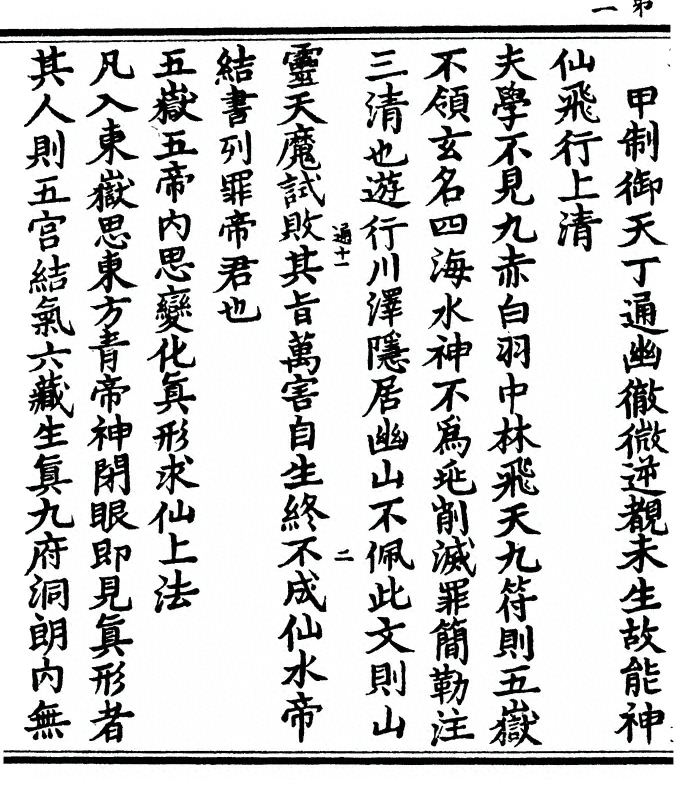 甲制御天丁通幽徹微逆覩未生故能神
仙飛行上清
夫學不見九赤白羽中林飛天九符則五嶽
不領玄名四海水神不爲乼削滅罪簡勒注
三清也遊行川澤隱居幽山不佩此文則山
通十一 二
靈天魔試敗其旨萬害自生終不成仙水帝
結書列罪帝君也
五嶽五帝内思變化眞形求仙上法
凡入東嶽思東方青帝神閉眼即見眞形者
其人則五宮結氣六藏生眞九府洞朗内無